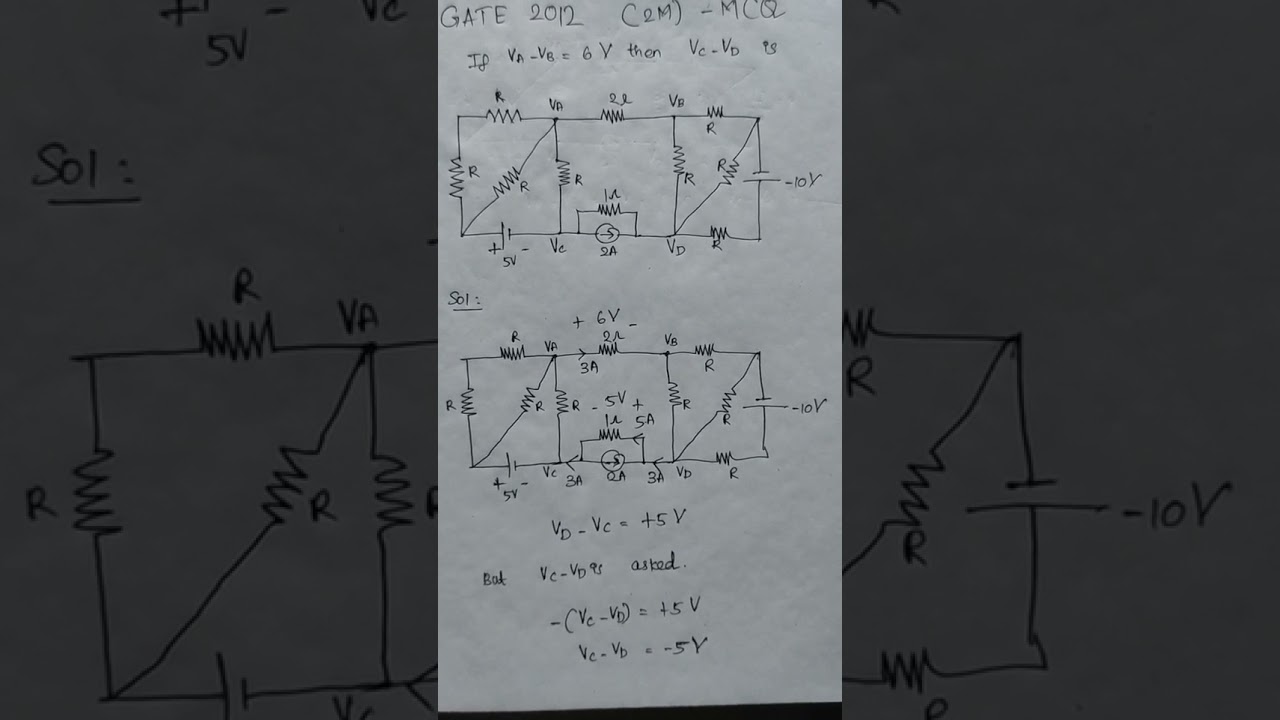 GATE 2012 (2M) - MCQ
If VA-VB = 6 V then VC-VD is
R VA 2Ω VB R
R R R R R -10V
1Ω
+ 5V - VC 2A VD R
Sol:
+ 6V -
R VA 2Ω VB R
3A
R R R R R -10V
- 5V +
1Ω 5A
+ 5V - VC 3A 2A 3A VD R
VD - VC = +5 V
But VC-VD is asked.
-(VC-VD) = +5 V
VC-VD = -5V
+ 5V - VC
Sol:
R VA
R R R
+ VC
R
R -10V
R